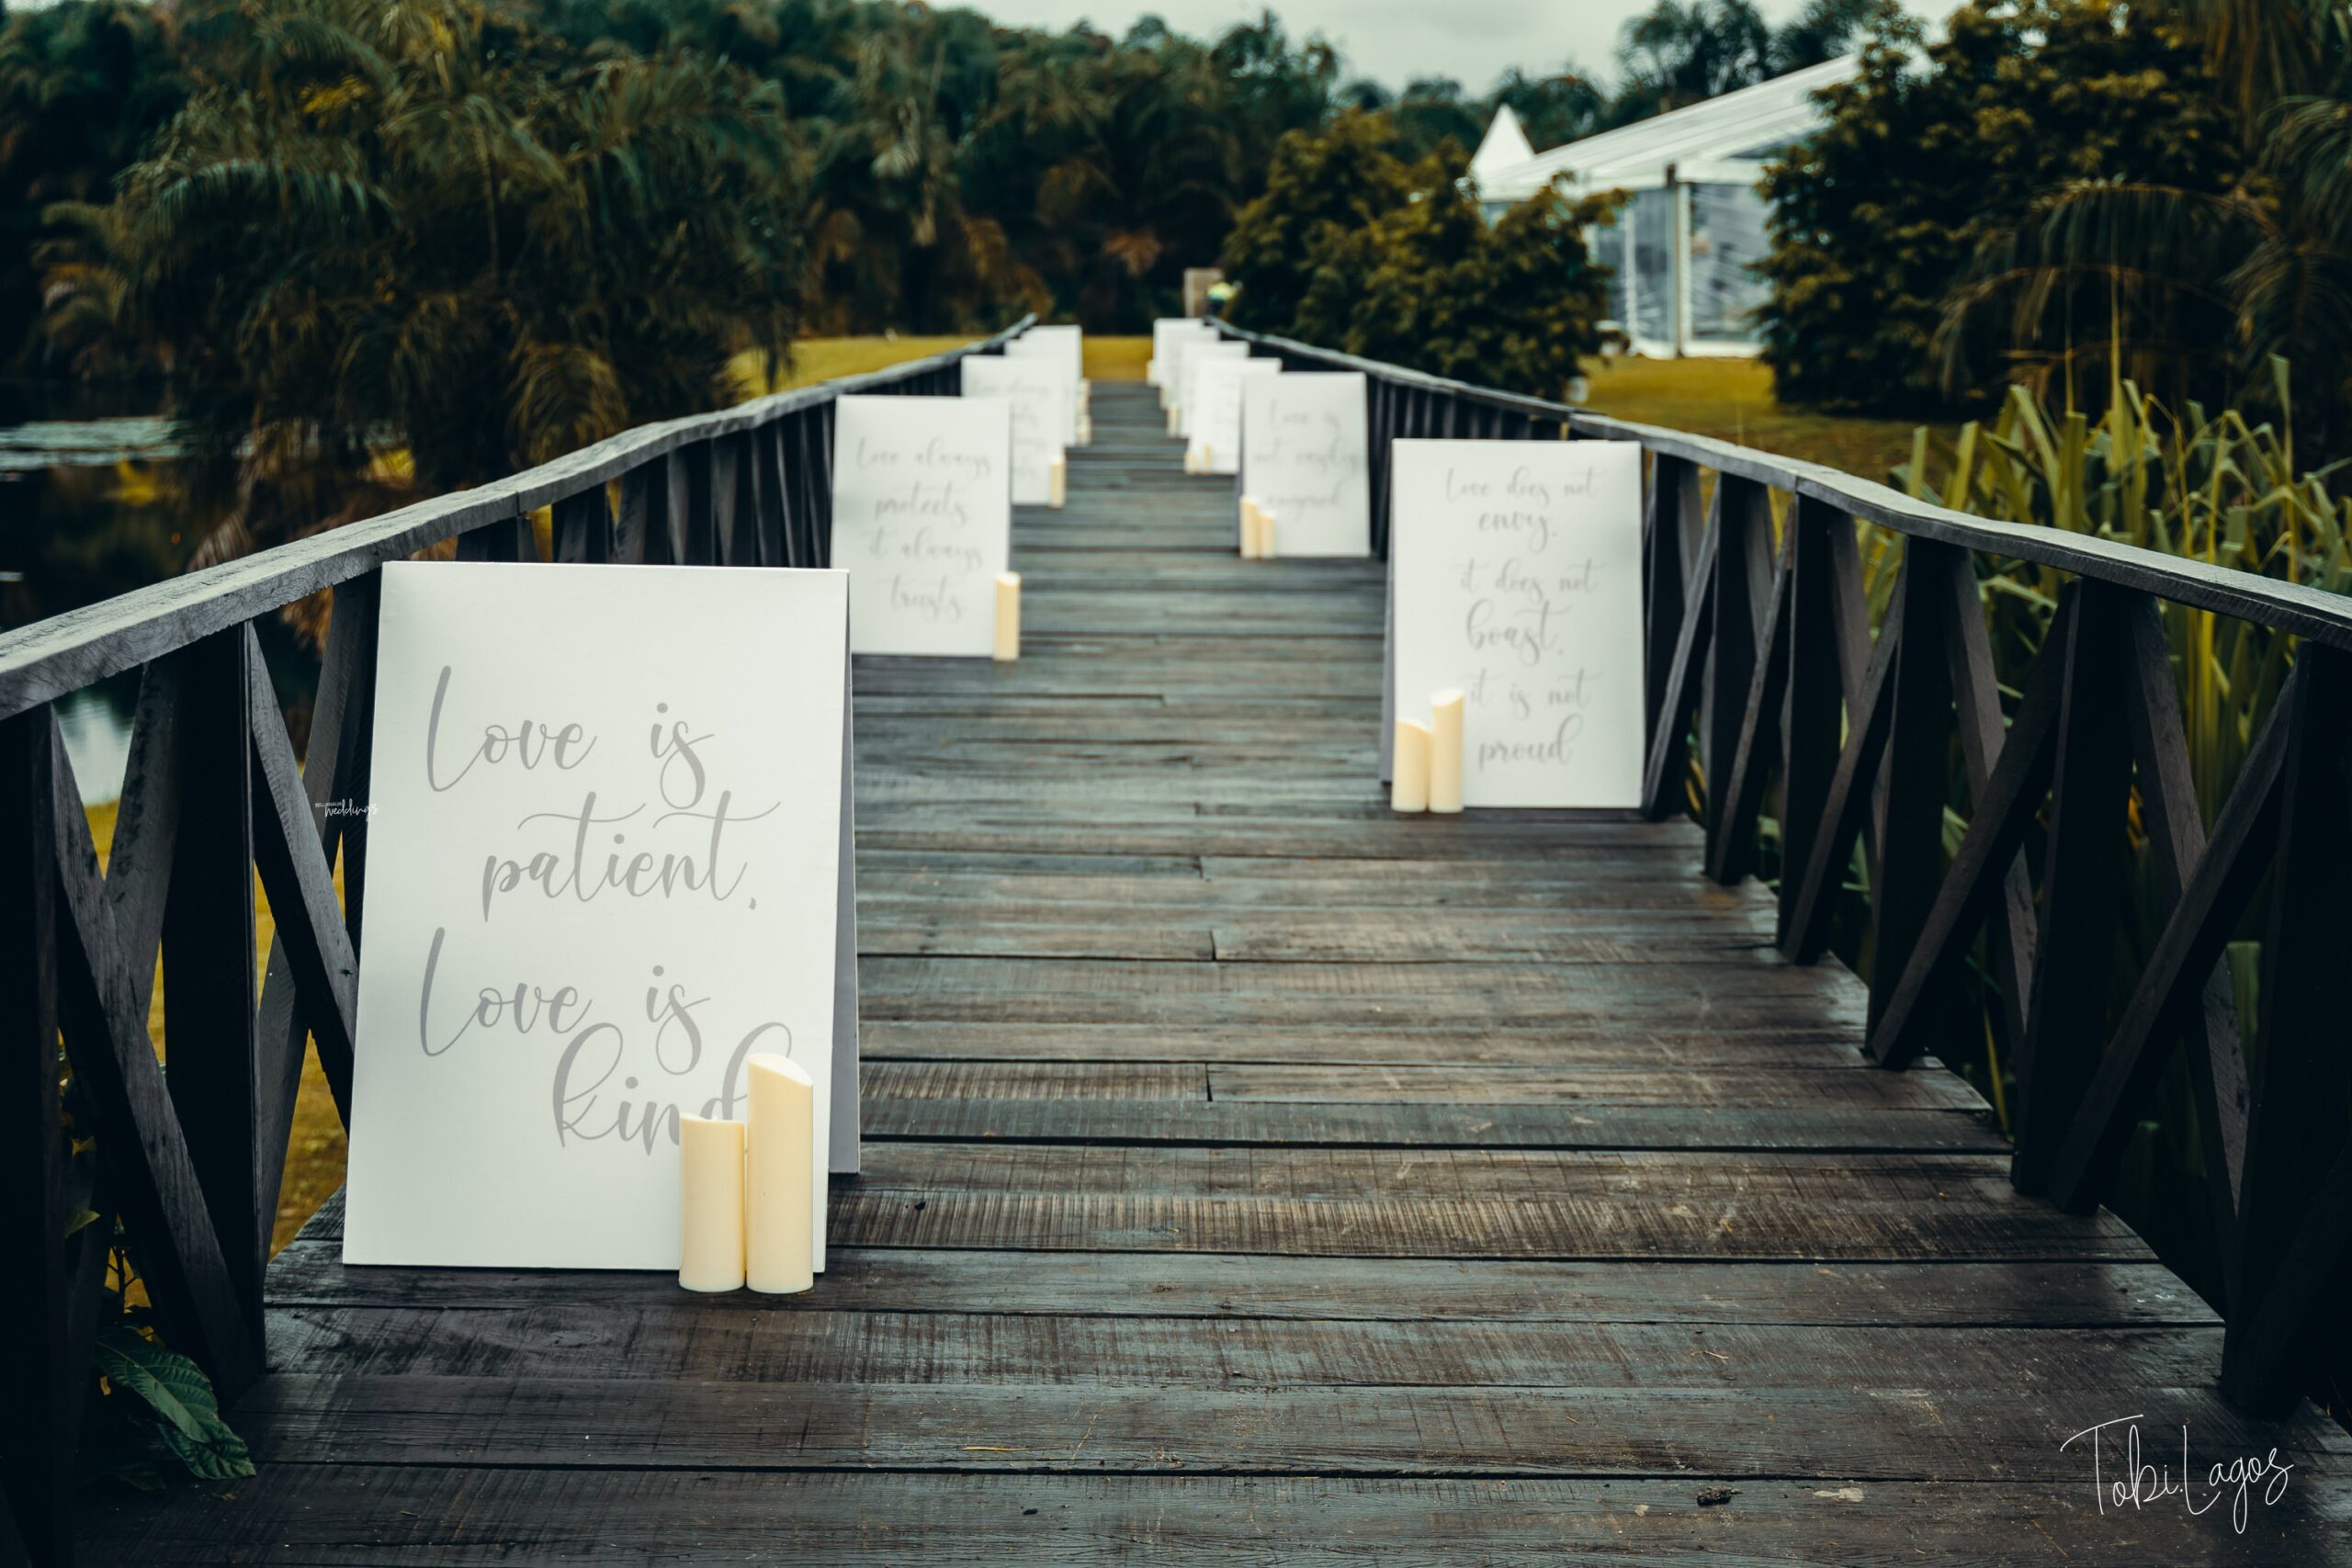 Love is
patient,
Love is
kind
Love always
protects
it always
trusts
Love is
not easily
angered
Love does not
envy,
it does not
boast,
it is not
proud
weddings
Tobi.Lagos